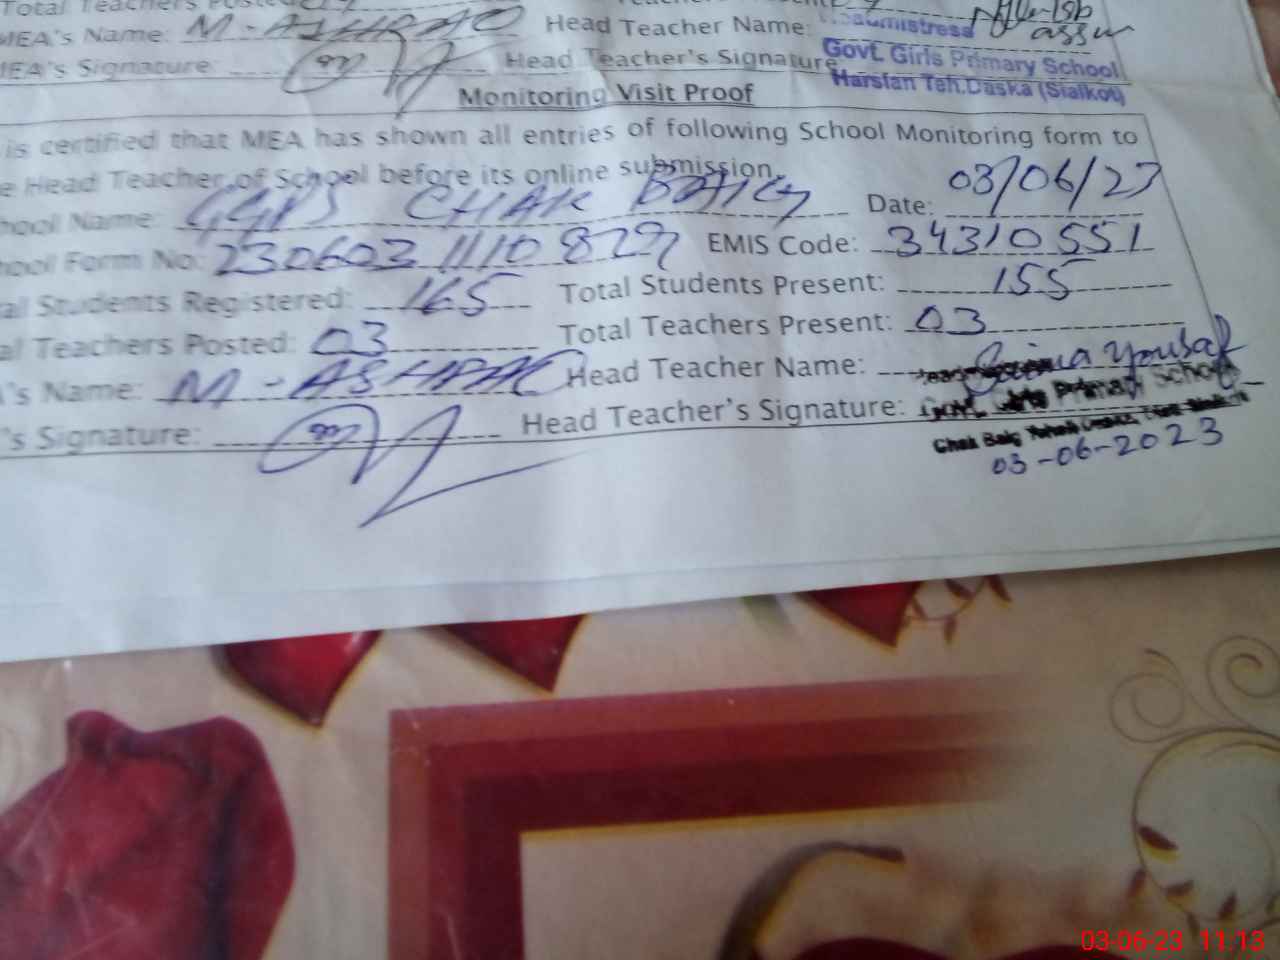 Total Teachers Posted
MEA's Name: M-ASHFAQ Head Teacher Name: Headmistress
MEA's Signature: Head Teacher's Signature Govt. Girls Primary School
Harsian Teh.Daska (Sialkot)
Monitoring Visit Proof
is certified that MEA has shown all entries of following School Monitoring form to
e Head Teacher of School before its online submission.
hool Name: GGPS CHAK BAIG Date: 03/06/23
hool Form No: 230603 1110 829 EMIS Code: 34310551
al Students Registered: 165 Total Students Present: 155
al Teachers Posted: 03 Total Teachers Present: 03
's Name: M-ASHFAQ Head Teacher Name: Saima Yousaf
's Signature: Head Teacher's Signature: Govt. Girls Primary School
Chak Baig
03-06-2023
03-06-23 11:13